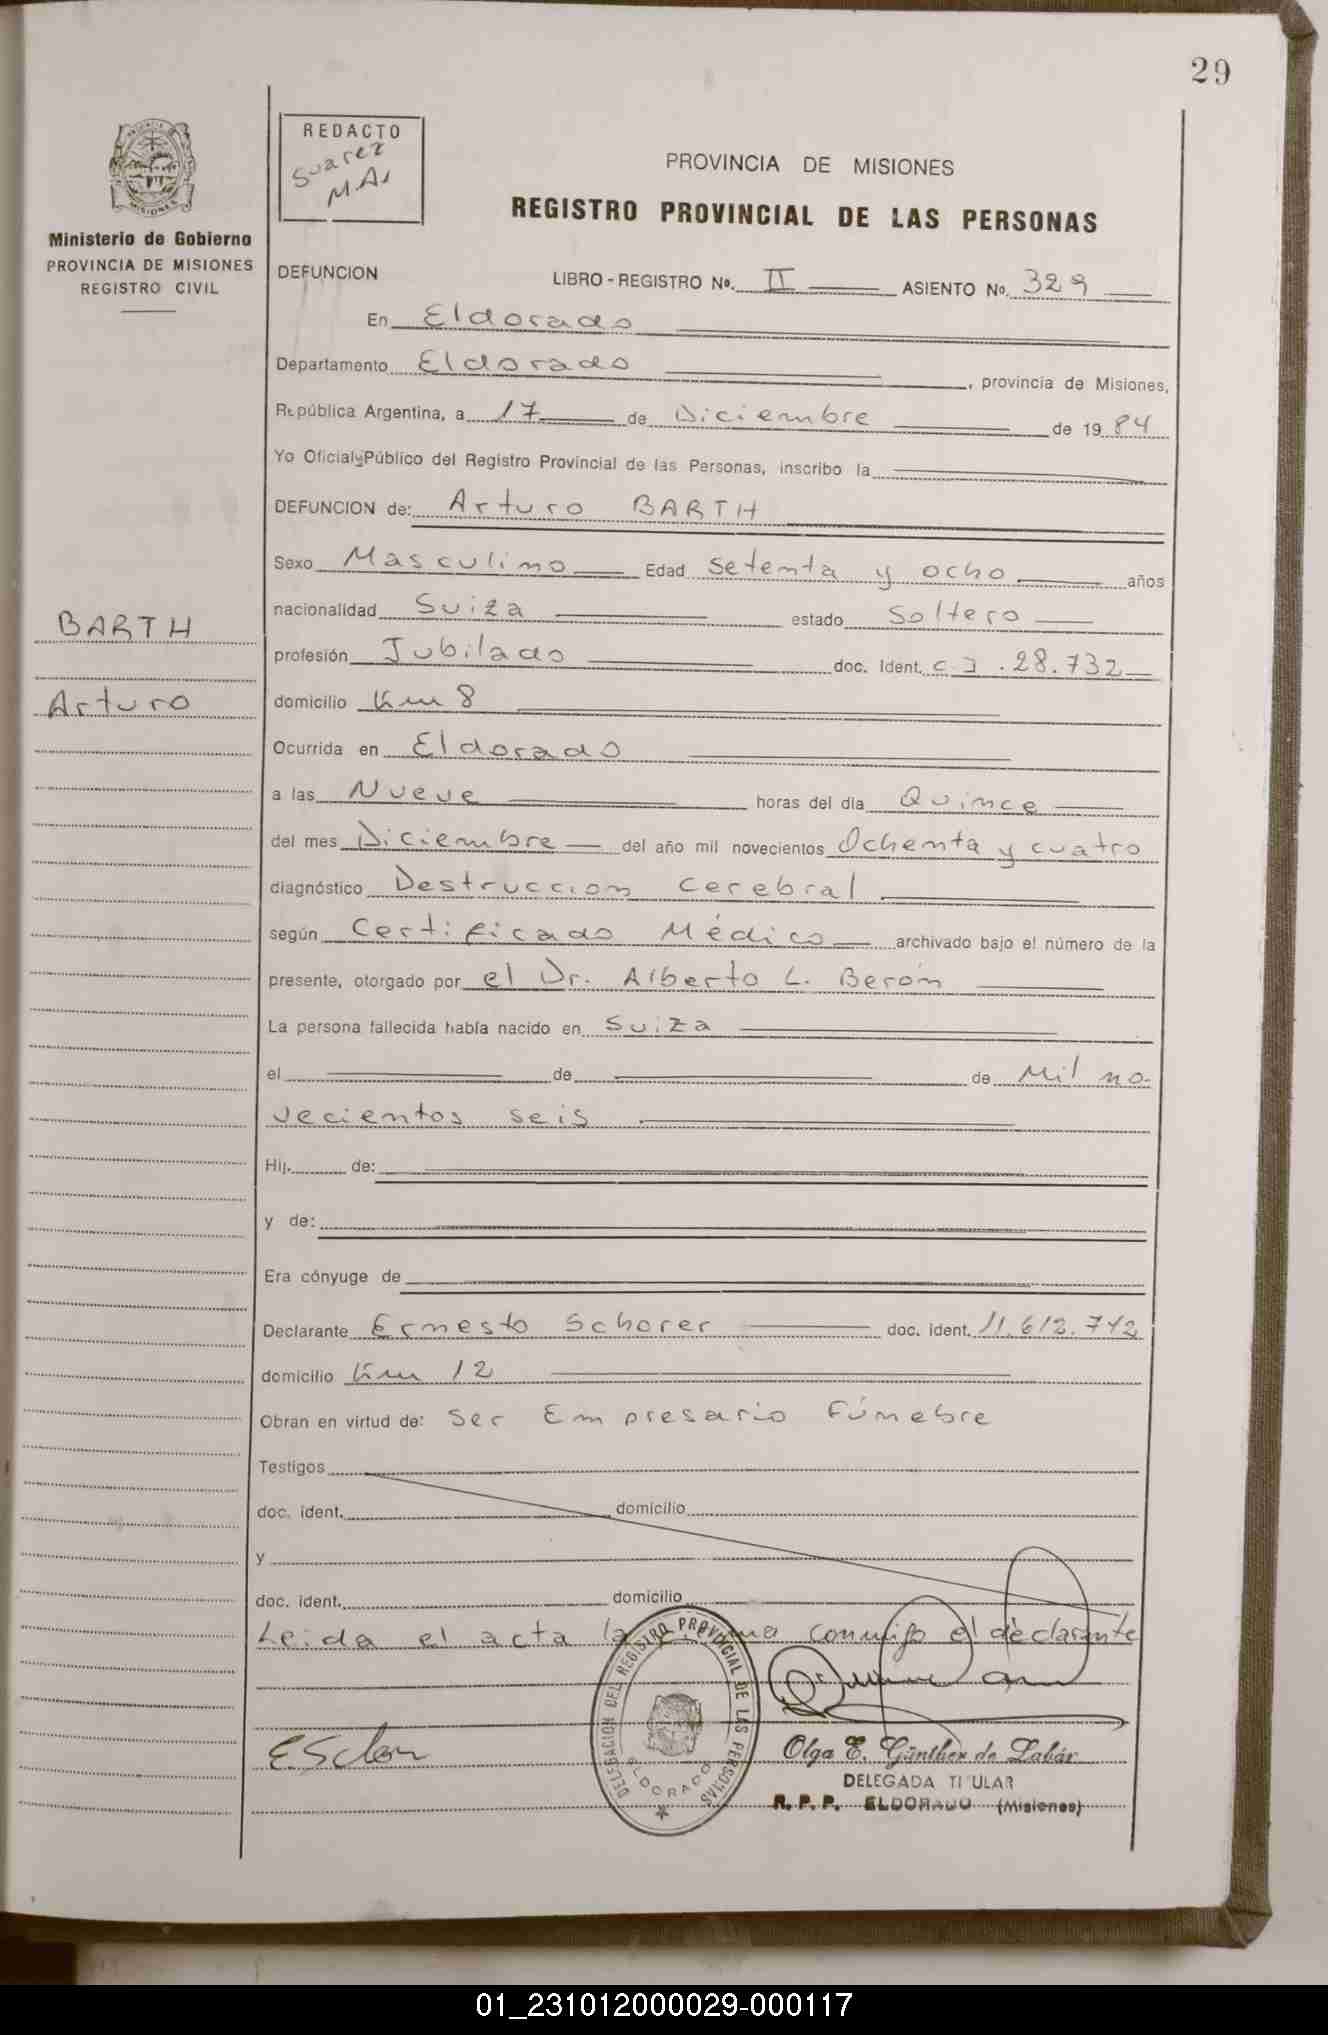 29
REDACTO
Suarez
M.A.
PROVINCIA DE MISIONES
REGISTRO PROVINCIAL DE LAS PERSONAS
Ministerio de Gobierno
PROVINCIA DE MISIONES
REGISTRO CIVIL
DEFUNCION LIBRO - REGISTRO Nº. II ASIENTO Nº. 329
En Eldorado
Departamento Eldorado, provincia de Misiones,
República Argentina, a 17 de Diciembre de 1984
Yo Oficial Público del Registro Provincial de las Personas, inscribo la
DEFUNCION de: Arturo BARTH
Sexo Masculino Edad Setenta y ocho años
nacionalidad Suiza estado Soltero
BARTH
Arturo
profesión Jubilado doc. Ident. C I . 28.732
domicilio Km 8
Ocurrida en Eldorado
a las Nueve horas del día Quince
del mes Diciembre del año mil novecientos Ochenta y cuatro
diagnóstico Destruccion cerebral
según Certificado Médico archivado bajo el número de la
presente, otorgado por el Dr. Alberto L. Berón
La persona fallecida había nacido en Suiza
el de de Mil no-
vecientos seis
Hij. de:
y de:
Era cónyuge de
Declarante Ernesto Schorer doc. ident. 11.612.742
domicilio Km 12
Obran en virtud de: Ser Empresario Fúnebre
Testigos
doc. ident. domicilio
y
doc. ident. domicilio
Leida el acta la firma conmigo el declarante
DELEGACION DEL REGISTRO PROVINCIAL DE LAS PERSONAS
ELDORADO
Olga E. Günther de Labár
DELEGADA TITULAR
R.P.P. ELDORADO (Misiones)
01_231012000029-000117